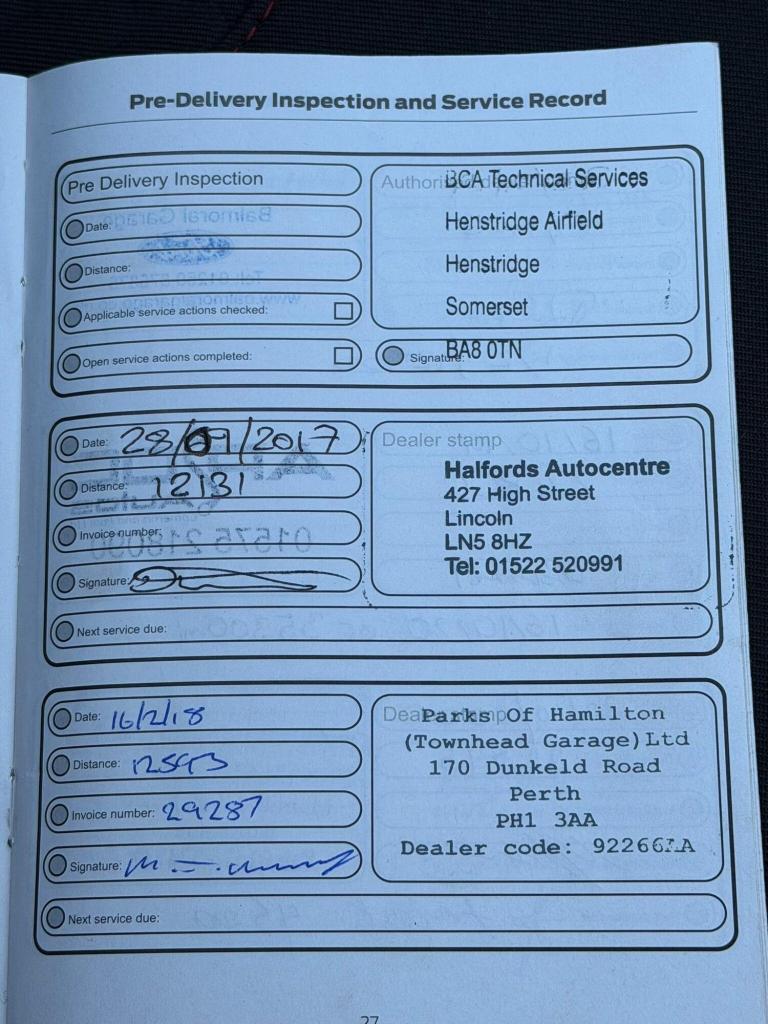 Pre-Delivery Inspection and Service Record
Pre Delivery Inspection
Date:
Distance:
Applicable service actions checked:
Open service actions completed:
BCA Technical Services
Henstridge Airfield
Henstridge
Somerset
BA8 0TN
Signature:
Date: 28/09/2017
Distance: 12131
Invoice number:
Signature:
Next service due:
Dealer stamp
Halfords Autocentre
427 High Street
Lincoln
LN5 8HZ
Tel: 01522 520991
Date: 16/2/18
Distance:
Invoice number: 29287
Signature:
Next service due:
Dealer stamp
Parks Of Hamilton
(Townhead Garage)Ltd
170 Dunkeld Road
Perth
PH1 3AA
Dealer code:
27